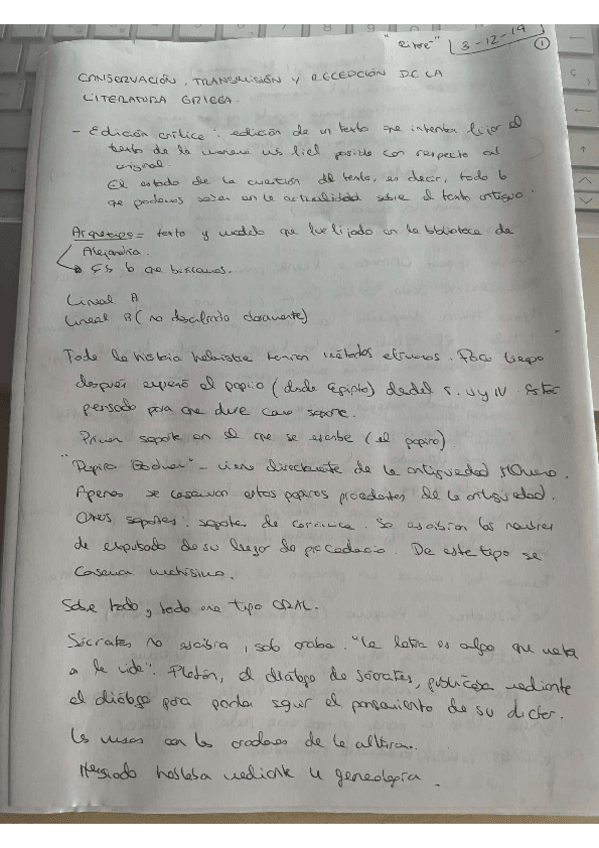 3-12-19
1
CONSERVACIÓN, TRANSMISIÓN Y RECEPCIÓN DE LA
LITERATURA GRIEGA.
- Edición crítica: edición de un texto que intenta fijar el
texto de la manera más fiel posible con respecto al
original.
El estado de la cuestión del texto, es decir, todo lo
que podemos saber en la actualidad sobre el texto antiguo.
Arquetipo = texto y modelo que fue fijado en la biblioteca de
Alejandría.
Es lo que buscamos.
Lineal A
Lineal B (no descifrado claramente)
Toda la historia tenían métodos efímeros. Poco tiempo
después empezó el papiro (desde Egipto) desde el s. V y IV. Está
pensado para que dure como soporte.
Primer soporte en el que se escribe (el papiro).
"Papiro - viene directamente de la antigüedad
Apenas se conservan estos papiros procedentes de la antigüedad.
Otros soportes: soportes de cerámica. Se escribían los nombres
de expulsado de su lugar de procedencia. De este tipo se
conserva muchísimo.
Sobre todo, y todo era tipo ORAL.
Sócrates no escribía, solo oraba. "La letra es algo que mata
a la vida". Platón, el diálogo de Sócrates, publicaba mediante
el diálogo para poder seguir el pensamiento de su
Lo mismo con los oradores de la
Hesíodo hablaba mediante la geneología.